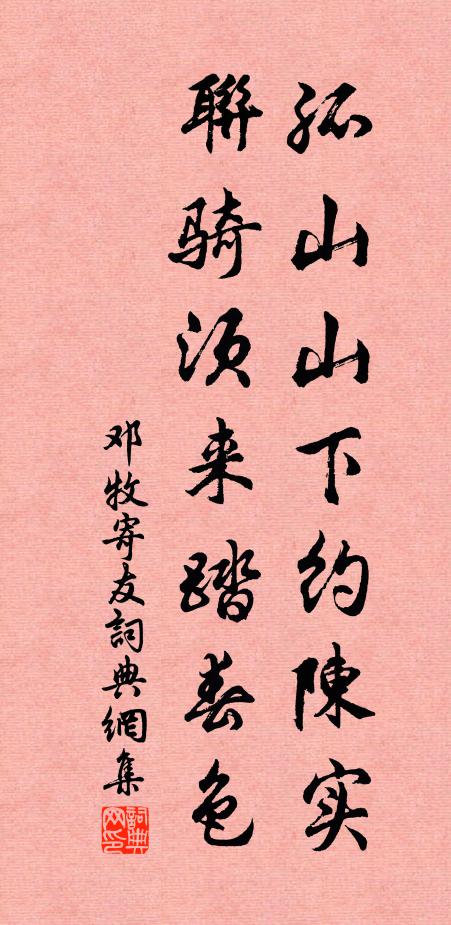 孤山山下约陳实
聯骑须来踏春色
邓牧寄友詞典網集
詞典网印